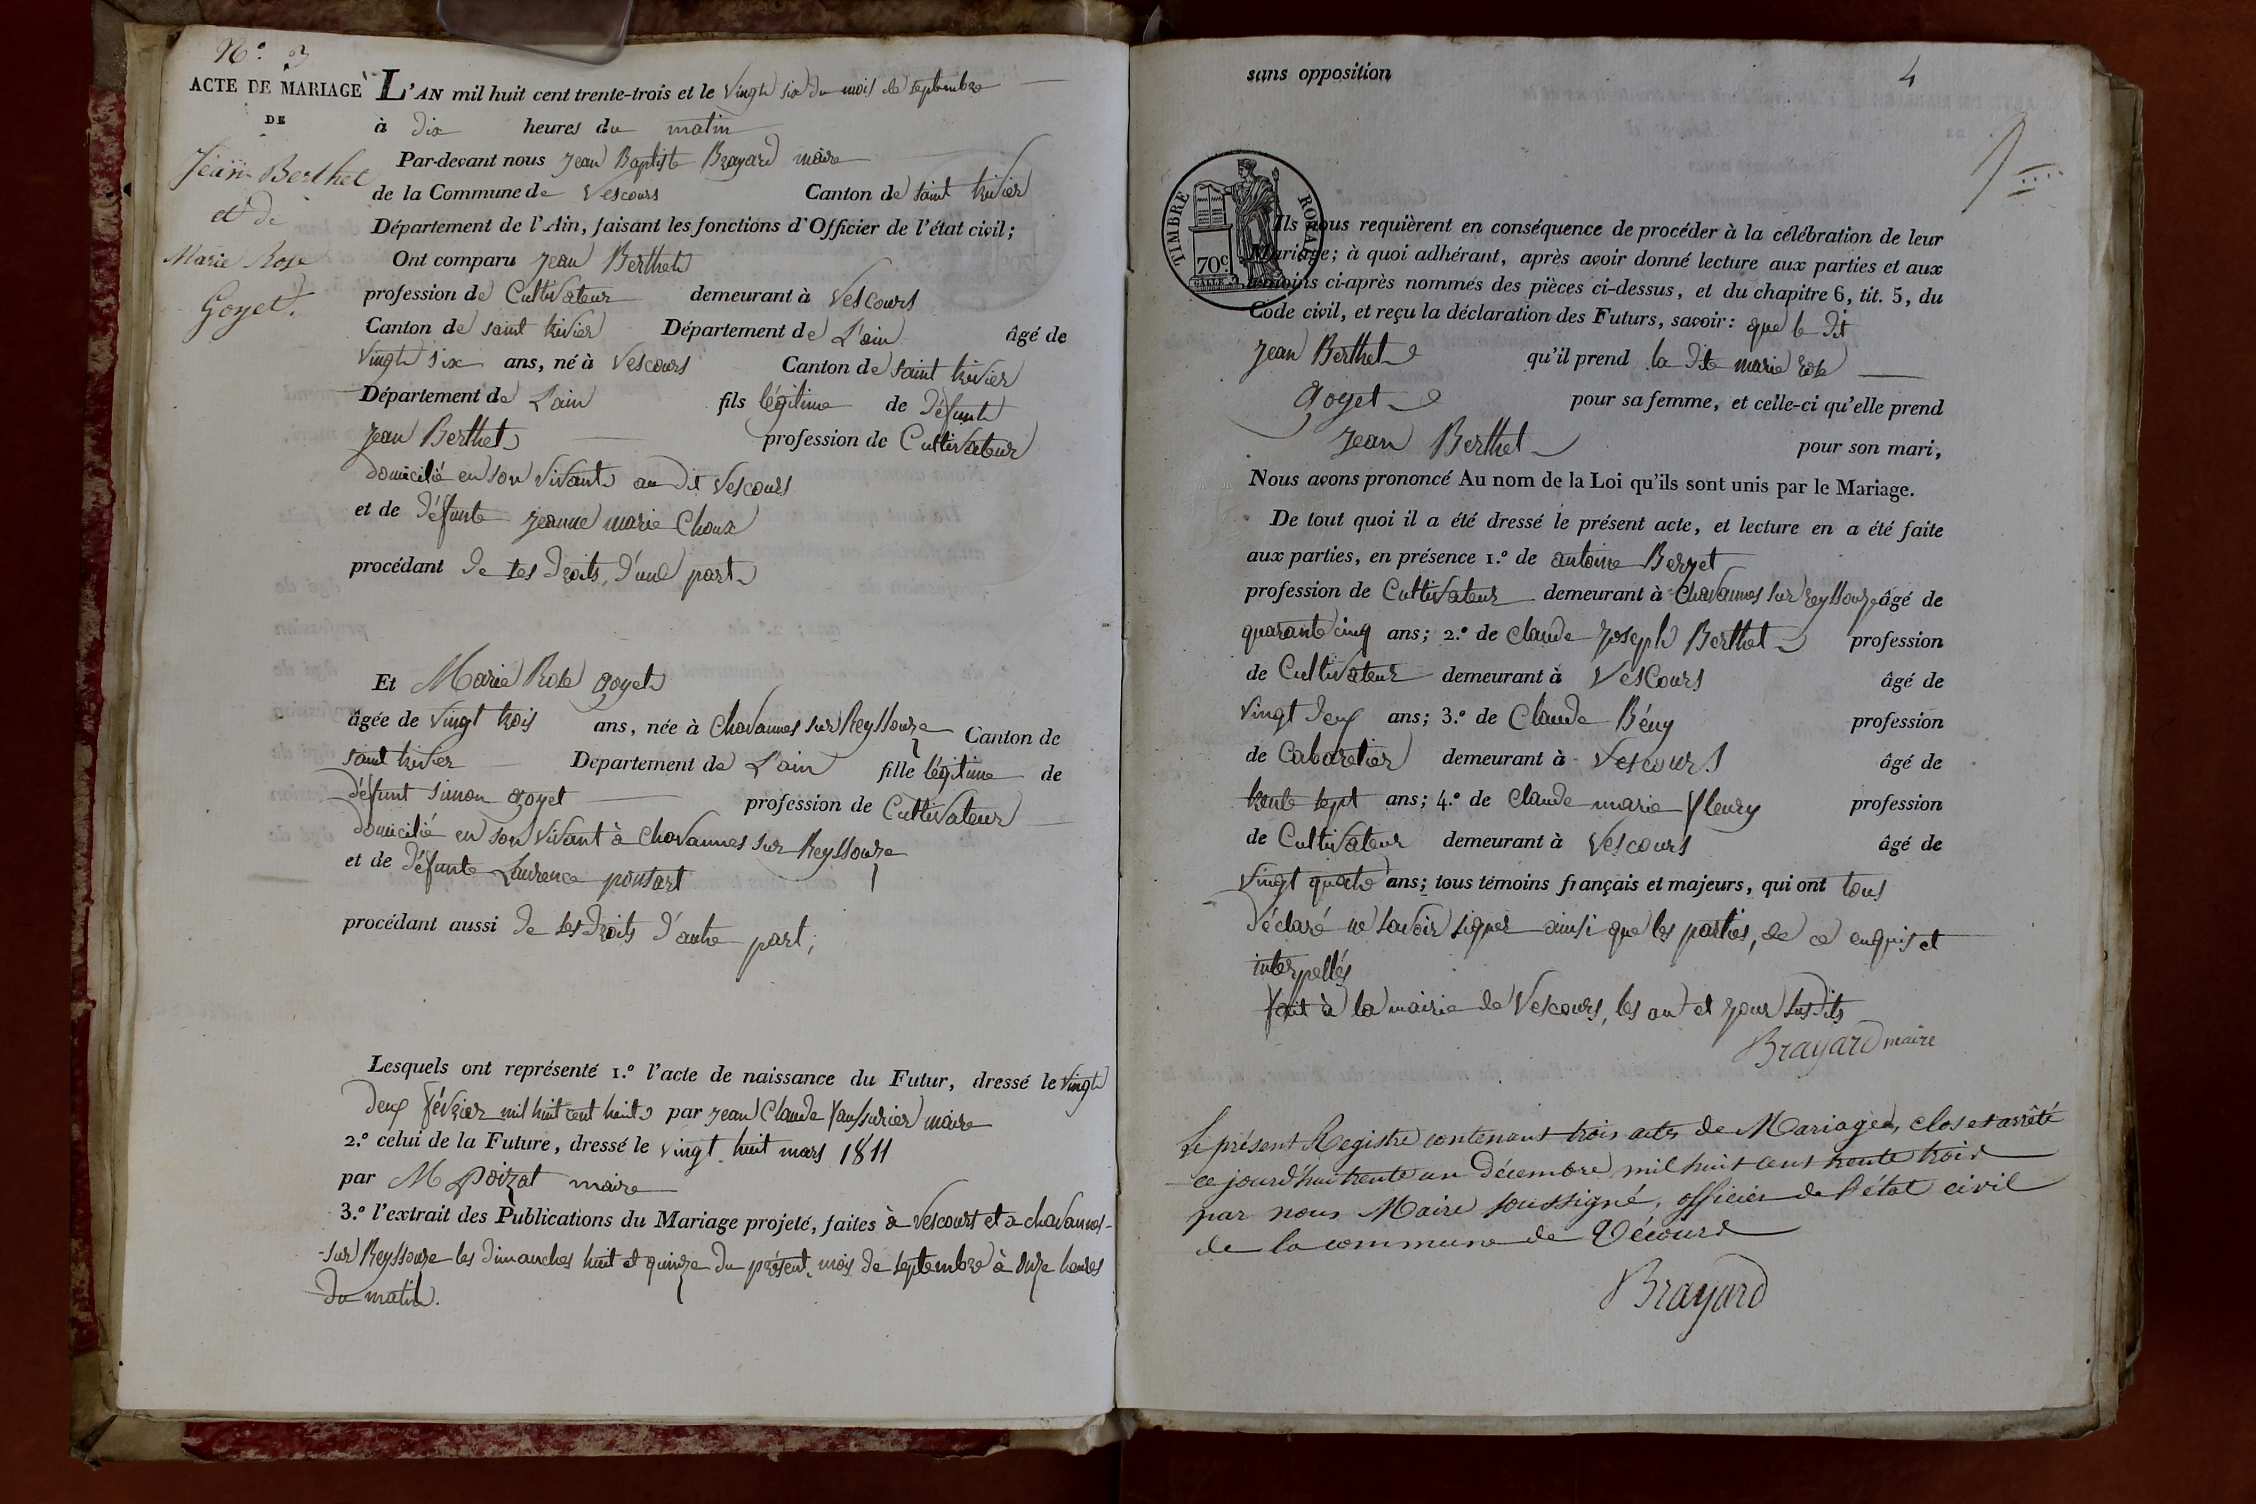 N.o 3
ACTE DE MARIAGE
DE
Jean Berthet
et de
Marie Rose
Goyet.
L'AN mil huit cent trente-trois et le vingt six du mois de septembre
à dix heures du matin
Par-devant nous Jean Baptiste Brayard maire
de la Commune de Vescours Canton de saint trivier
Département de l'Ain, faisant les fonctions d'Officier de l'état civil;
Ont comparu Jean Berthet
profession de Cultivateur demeurant à Vescours
Canton de saint trivier Département de L'ain âgé de
vingt six ans, né à Vescours Canton de saint trivier
Département de L'ain fils légitime de défunt
Jean Berthet profession de Cultivateur
domicilié en son vivant au dit Vescours
et de défunte jeanne marie Choux
procédant de ses droits, d'une part
Et Marie Rose goyet
âgée de vingt trois ans, née à Chavannes sur Reyssouze Canton de
saint trivier Département de L'ain fille légitime de
défunt simon goyet profession de Cultivateur
domicilié en son vivant à Chavannes sur Reyssouze
et de défunte Laurence ponsart
procédant aussi de ses droits d'autre part;
Lesquels ont représenté 1.o l'acte de naissance du Futur, dressé le vingt
deux février mil huit cent huit par jean Claude maire
2.o celui de la Future, dressé le vingt huit mars 1811
par M poizat maire
3.o l'extrait des Publications du Mariage projeté, faites à Vescours et a chavannes-
-sur Reyssouze les dimanches huit et quinze du présent mois de septembre à onze heures
du matin.
sans opposition
4
TIMBRE ROYAL
70c
Ils nous requièrent en conséquence de procéder à la célébration de leur
Mariage; à quoi adhérant, après avoir donné lecture aux parties et aux
témoins ci-après nommés des pièces ci-dessus, et du chapitre 6, tit. 5, du
Code civil, et reçu la déclaration des Futurs, savoir: que le dit
Jean Berthet qu'il prend la dite marie rose
goyet pour sa femme, et celle-ci qu'elle prend
Jean Berthet pour son mari,
Nous avons prononcé Au nom de la Loi qu'ils sont unis par le Mariage.
De tout quoi il a été dressé le présent acte, et lecture en a été faite
aux parties, en présence 1.o de antoine Berget
profession de Cultivateur demeurant à Chavannes sur reyssouze âgé de
quarante cinq ans; 2.o de Claude Joseph Berthet profession
de Cultivateur demeurant à Vescours âgé de
vingt deux ans; 3.o de Claude Bény profession
de Cabaretier demeurant à Vescours âgé de
trente sept ans; 4.o de Claude marie fleury profession
de Cultivateur demeurant à Vescours âgé de
vingt quatre ans; tous témoins français et majeurs, qui ont tous
déclaré ne savoir signer ainsi que les parties, de ce enquis et
interpellés
fait à la mairie de Vescours, les an et jour susdits
Brayard maire
Le présent Registre contenant trois actes de Mariages, clos et arrêté
ce jourd'hui trente un décembre mil huit cent trente trois
par nous Maire soussigné, officier de l'état civil
de la commune de Vécours
Brayard